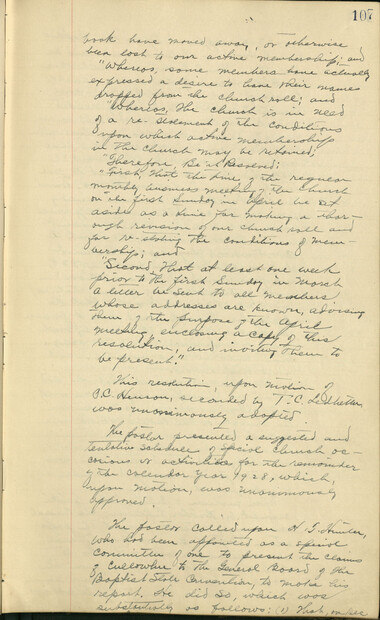 107
book have moved away, or otherwise
been lost to our active membership; and
"Whereas, some members have actually
expressed a desire to have their names
dropped from the church roll; and
"Whereas, the church is in need
of a re-statement of the conditions
upon which active membership
in the church may be retained;
"Therefore, Be it Resolved:
"First, that the time of the regular
monthly business meeting of the church
on the first Sunday in April be set
aside as a time for making a thor-
ough revision of our church roll and
for re-stating the conditions of mem-
bership; and
"Second, that at least one week
prior to the first Sunday in March
a letter be sent to all members
whose addresses are known, advising
them of the purpose of the April
meeting, enclosing a copy of this
resolution, and inviting them to
be present."
This resolution, upon motion of
P.C. Henson, seconded by T.C. Ledbetter,
was unanimously adopted.
The pastor presented a suggested and
tentative schedule of special church oc-
casions or activities for the remainder
of the calendar year 1928, which,
upon motion, was unanimously
approved.
The pastor called upon H. T. Hunter,
who had been appointed as a special
committee of one to present the claims
of Cullowhee to the General Board of the
Baptist State Convention, to make his
report. He did so, which was
substantially as follows: (1) That,